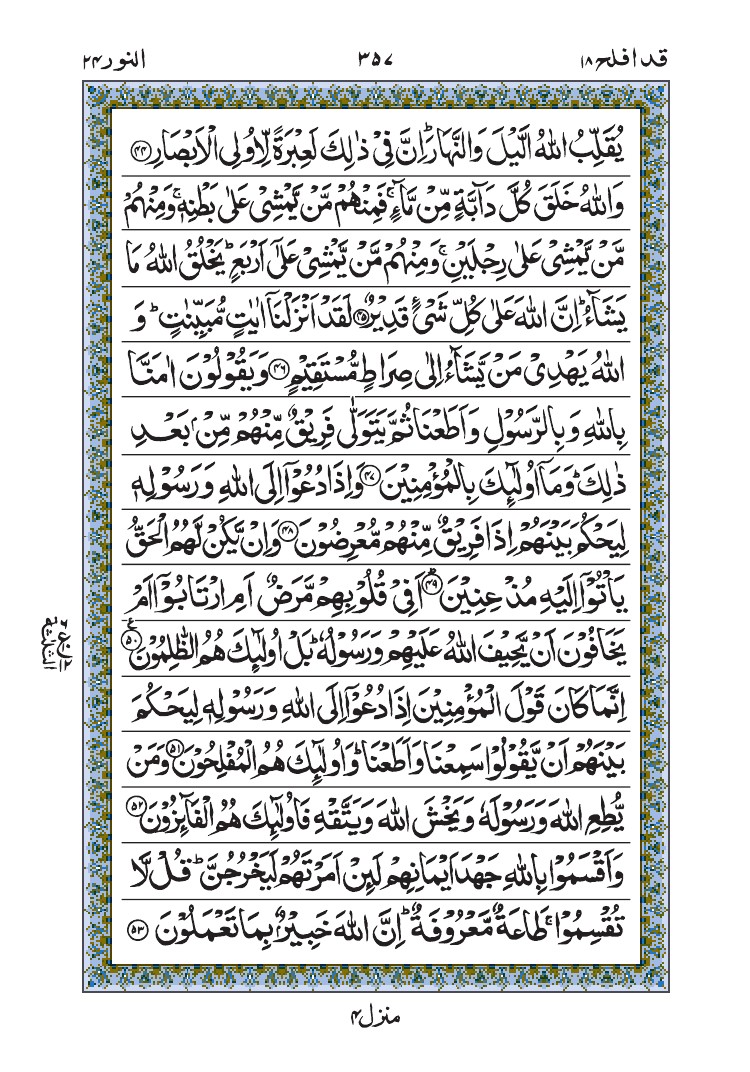 قد افلح ۱۸ ۳۵۷ النور ۲۴
يُقَلِّبُ اللّٰهُ الَّيْلَ وَالنَّهَارَ ؕ اِنَّ فِىْ ذٰلِكَ لَعِبْرَةً لِّاُولِى الْاَبْصَارِ ﴿۴۴﴾
وَاللّٰهُ خَلَقَ كُلَّ دَآبَّةٍ مِّنْ مَّآءٍ ۚ فَمِنْهُمْ مَّنْ يَّمْشِىْ عَلٰى بَطْنِهٖ ۚ وَمِنْهُمْ
مَّنْ يَّمْشِىْ عَلٰى رِجْلَيْنِ ۚ وَمِنْهُمْ مَّنْ يَّمْشِىْ عَلٰٓى اَرْبَعٍ ؕ يَخْلُقُ اللّٰهُ مَا
يَشَآءُ ؕ اِنَّ اللّٰهَ عَلٰى كُلِّ شَىْءٍ قَدِيْرٌ ﴿۴۵﴾ لَقَدْ اَنْزَلْنَاۤ اٰيٰتٍ مُّبَيِّنٰتٍ ؕ وَ
اللّٰهُ يَهْدِىْ مَنْ يَّشَآءُ اِلٰى صِرَاطٍ مُّسْتَقِيْمٍ ﴿۴۶﴾ وَيَقُوْلُوْنَ اٰمَنَّا
بِاللّٰهِ وَبِالرَّسُوْلِ وَاَطَعْنَا ثُمَّ يَتَوَلّٰى فَرِيْقٌ مِّنْهُمْ مِّنْۢ بَعْدِ
ذٰلِكَ ؕ وَمَاۤ اُولٰٓئِكَ بِالْمُؤْمِنِيْنَ ﴿۴۷﴾ وَاِذَا دُعُوْۤا اِلَى اللّٰهِ وَرَسُوْلِهٖ
لِيَحْكُمَ بَيْنَهُمْ اِذَا فَرِيْقٌ مِّنْهُمْ مُّعْرِضُوْنَ ﴿۴۸﴾ وَاِنْ يَّكُنْ لَّهُمُ الْحَقُّ
يَاْتُوْۤا اِلَيْهِ مُذْعِنِيْنَ ؕ ﴿۴۹﴾ اَفِىْ قُلُوْبِهِمْ مَّرَضٌ اَمِ ارْتَابُوْۤا اَمْ
يَخَافُوْنَ اَنْ يَّحِيْفَ اللّٰهُ عَلَيْهِمْ وَرَسُوْلُهٗ ؕ بَلْ اُولٰٓئِكَ هُمُ الظّٰلِمُوْنَ ﴿۵۰﴾ ع
اِنَّمَا كَانَ قَوْلَ الْمُؤْمِنِيْنَ اِذَا دُعُوْۤا اِلَى اللّٰهِ وَرَسُوْلِهٖ لِيَحْكُمَ
بَيْنَهُمْ اَنْ يَّقُوْلُوْا سَمِعْنَا وَاَطَعْنَا ؕ وَاُولٰٓئِكَ هُمُ الْمُفْلِحُوْنَ ﴿۵۱﴾ وَمَنْ
يُّطِعِ اللّٰهَ وَرَسُوْلَهٗ وَيَخْشَ اللّٰهَ وَيَتَّقْهِ فَاُولٰٓئِكَ هُمُ الْفَآئِزُوْنَ ﴿۵۲﴾
وَاَقْسَمُوْا بِاللّٰهِ جَهْدَ اَيْمَانِهِمْ لَئِنْ اَمَرْتَهُمْ لَيَخْرُجُنَّ ؕ قُلْ لَّا
تُقْسِمُوْا ۚ طَاعَةٌ مَّعْرُوْفَةٌ ؕ اِنَّ اللّٰهَ خَبِيْرٌۢ بِمَا تَعْمَلُوْنَ ﴿۵۳﴾
منزل ۴